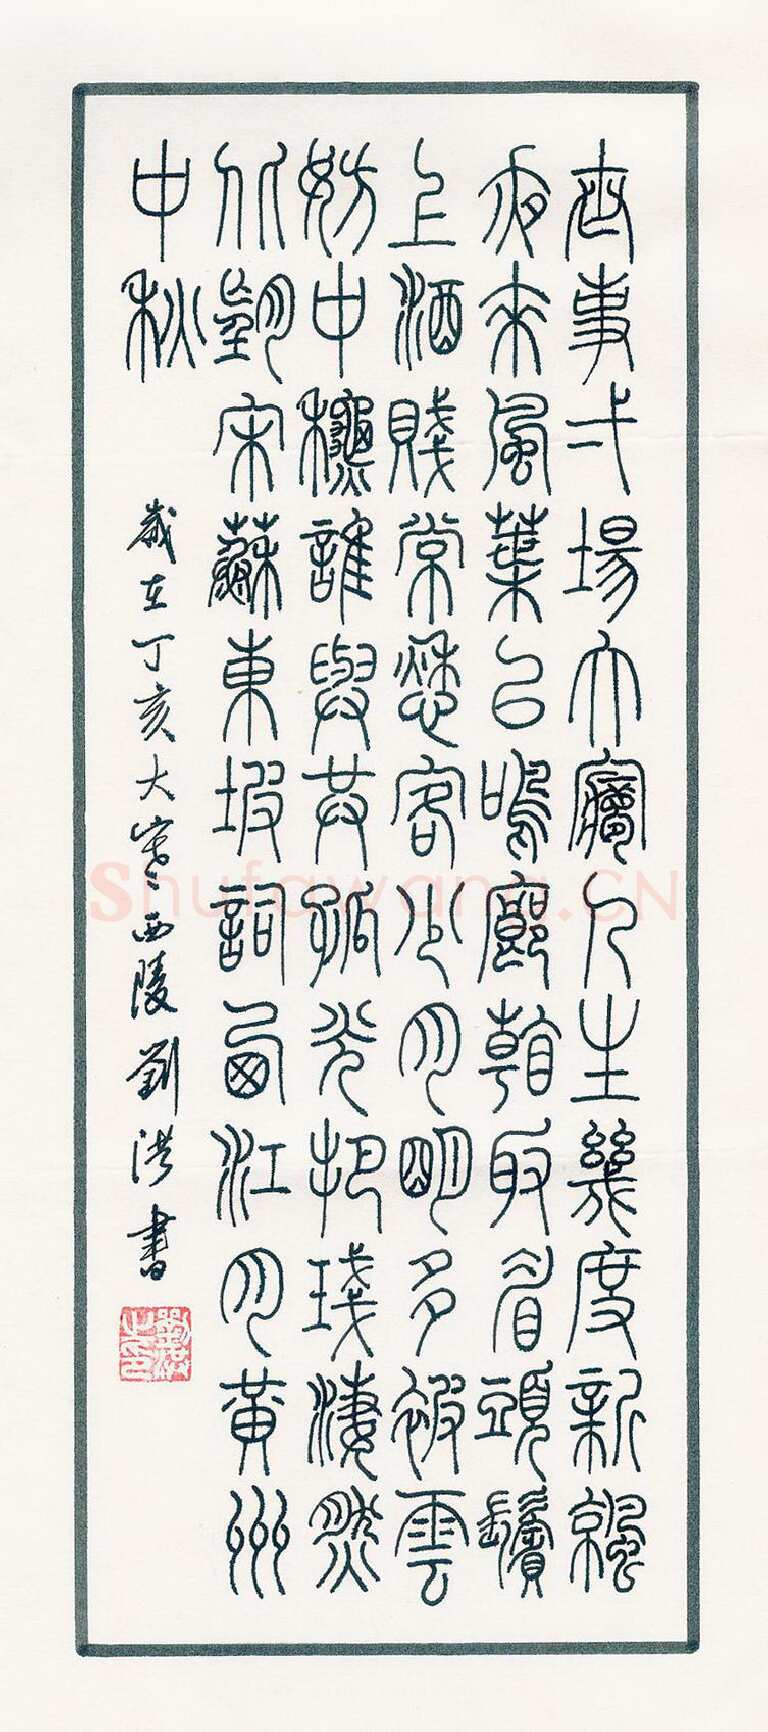 世事弌場大夢人生幾度新涼
夜來風葉已鳴廊看取眉頭鬢
上酒賤常愁客少月明多被雲
妨中龝誰與共孤光把琖淒然
北朢宋蘇東坡詞西江月黃州
中秋
歲在丁亥大寒西陵劉洪書
Shufawang.CN